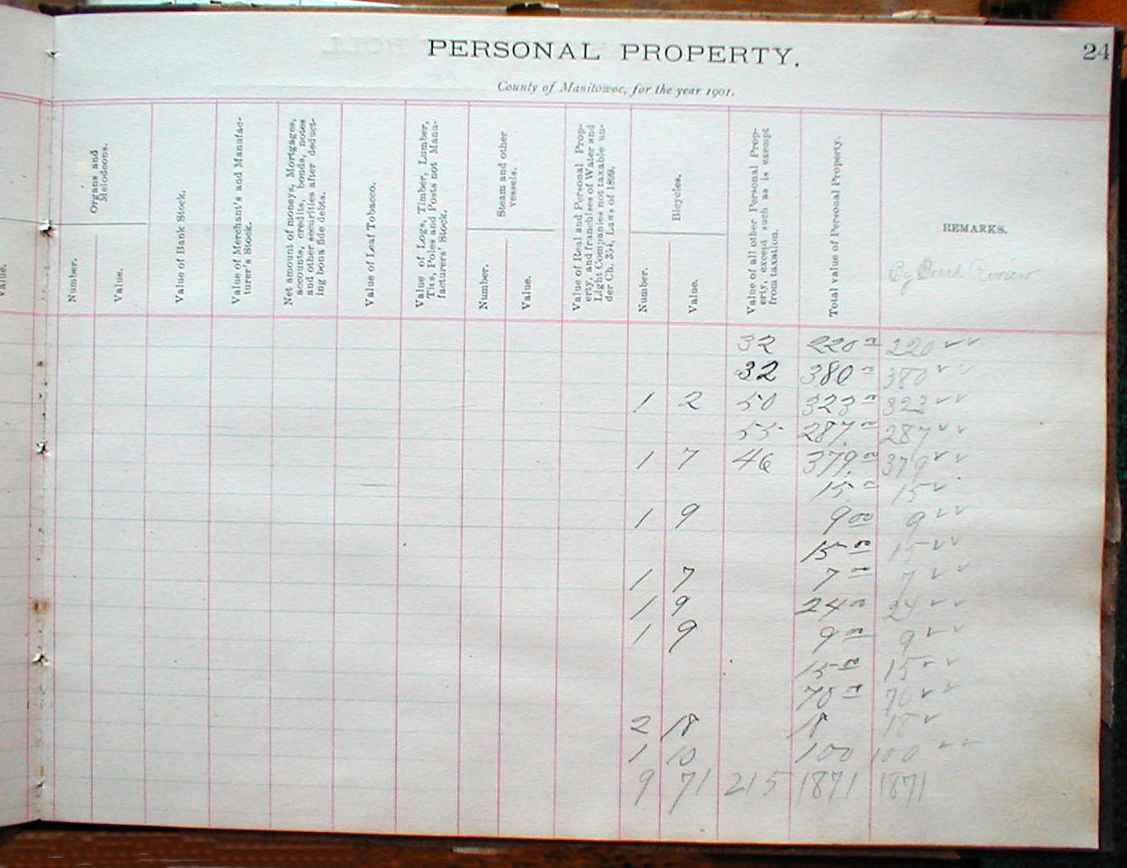 PERSONAL PROPERTY.
24
County of Manitowoc, for the year 1901.
Organs and Melodeons.
Number.
Value.
Value of Bank Stock.
Value of Merchant's and Manufac-
turer's Stock.
Net amount of moneys, Mortgages,
accounts, credits, bonds, notes
and other securities after deduct-
ing bona fide debts.
Value of Leaf Tobacco.
Value of Logs, Timber, Lumber,
Ties, Poles and Posts not Manu-
facturers' Stock.
Steam and other
vessels.
Number.
Value.
Value of Real and Personal Prop-
erty, and franchises of Water and
Light Companies not taxable un-
der Ch. 354, Laws of 1899.
Bicycles.
Number.
Value.
Value of all other Personal Prop-
erty, except such as is exempt
from taxation.
Total value of Personal Property.
REMARKS.
By Board
Value.
32 220 220
32 380 380
1 2 50 323 323
55 287 287
1 7 46 379 379
15 15
1 9 9 00 9
15 00 15
1 7 7 7
1 9 24 24
1 9 9 9
15 15
70 70
2 18 18 18
1 10 100 100
9 71 215 1871 1871